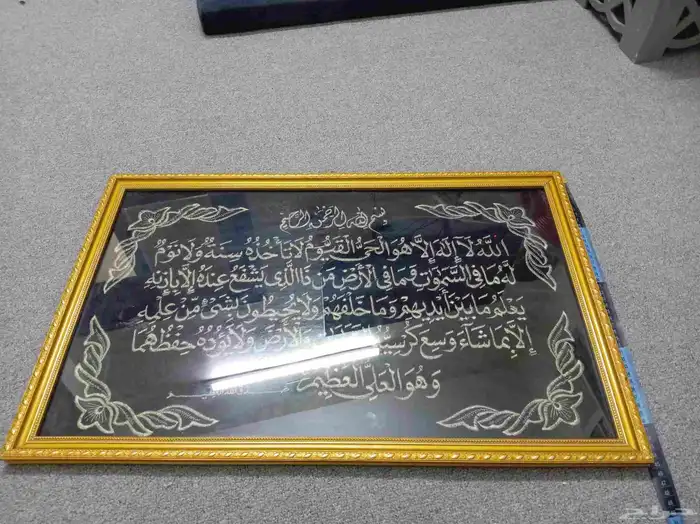 بسم الله الرحمن الرحيم
اللَّهُ لَا إِلَٰهَ إِلَّا هُوَ الْحَيُّ الْقَيُّومُ لَا تَأْخُذُهُ سِنَةٌ وَلَا نَوْمٌ
لَهُ مَا فِي السَّمٰوٰتِ وَمَا فِي الْأَرْضِ مَنْ ذَا الَّذِي يَشْفَعُ عِنْدَهُ إِلَّا بِإِذْنِهِ
يَعْلَمُ مَا بَيْنَ أَيْدِيهِمْ وَمَا خَلْفَهُمْ وَلَا يُحِيطُونَ بِشَيْءٍ مِنْ عِلْمِهِ
إِلَّا بِمَا شَاءَ وَسِعَ كُرْسِيُّهُ وَالْأَرْضَ وَلَا يَئُودُهُ حِفْظُهُمَا
وَهُوَ الْعَلِيُّ الْعَظِيمُ
حراج